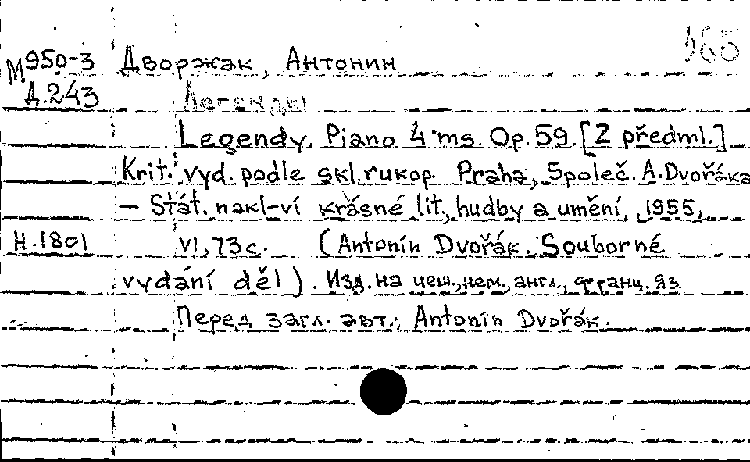 М950-3 Дворжак, Антонин 165
Д.243 Легенды
Legendy. Piano 4 ms. Op. 59. [Z předml.]
Krit. vyd. podle skl. rukop. Praha, Společ. A. Dvořáka
– Stát. nakl-ví krásné lit., hudby a umění, 1955,
Н.1801 VI, 73с. (Antonín Dvořák. Souborné
vydání děl). Изд. на чеш., нем., англ., франц. яз.
Перед загл. авт.: Antonín Dvořák.